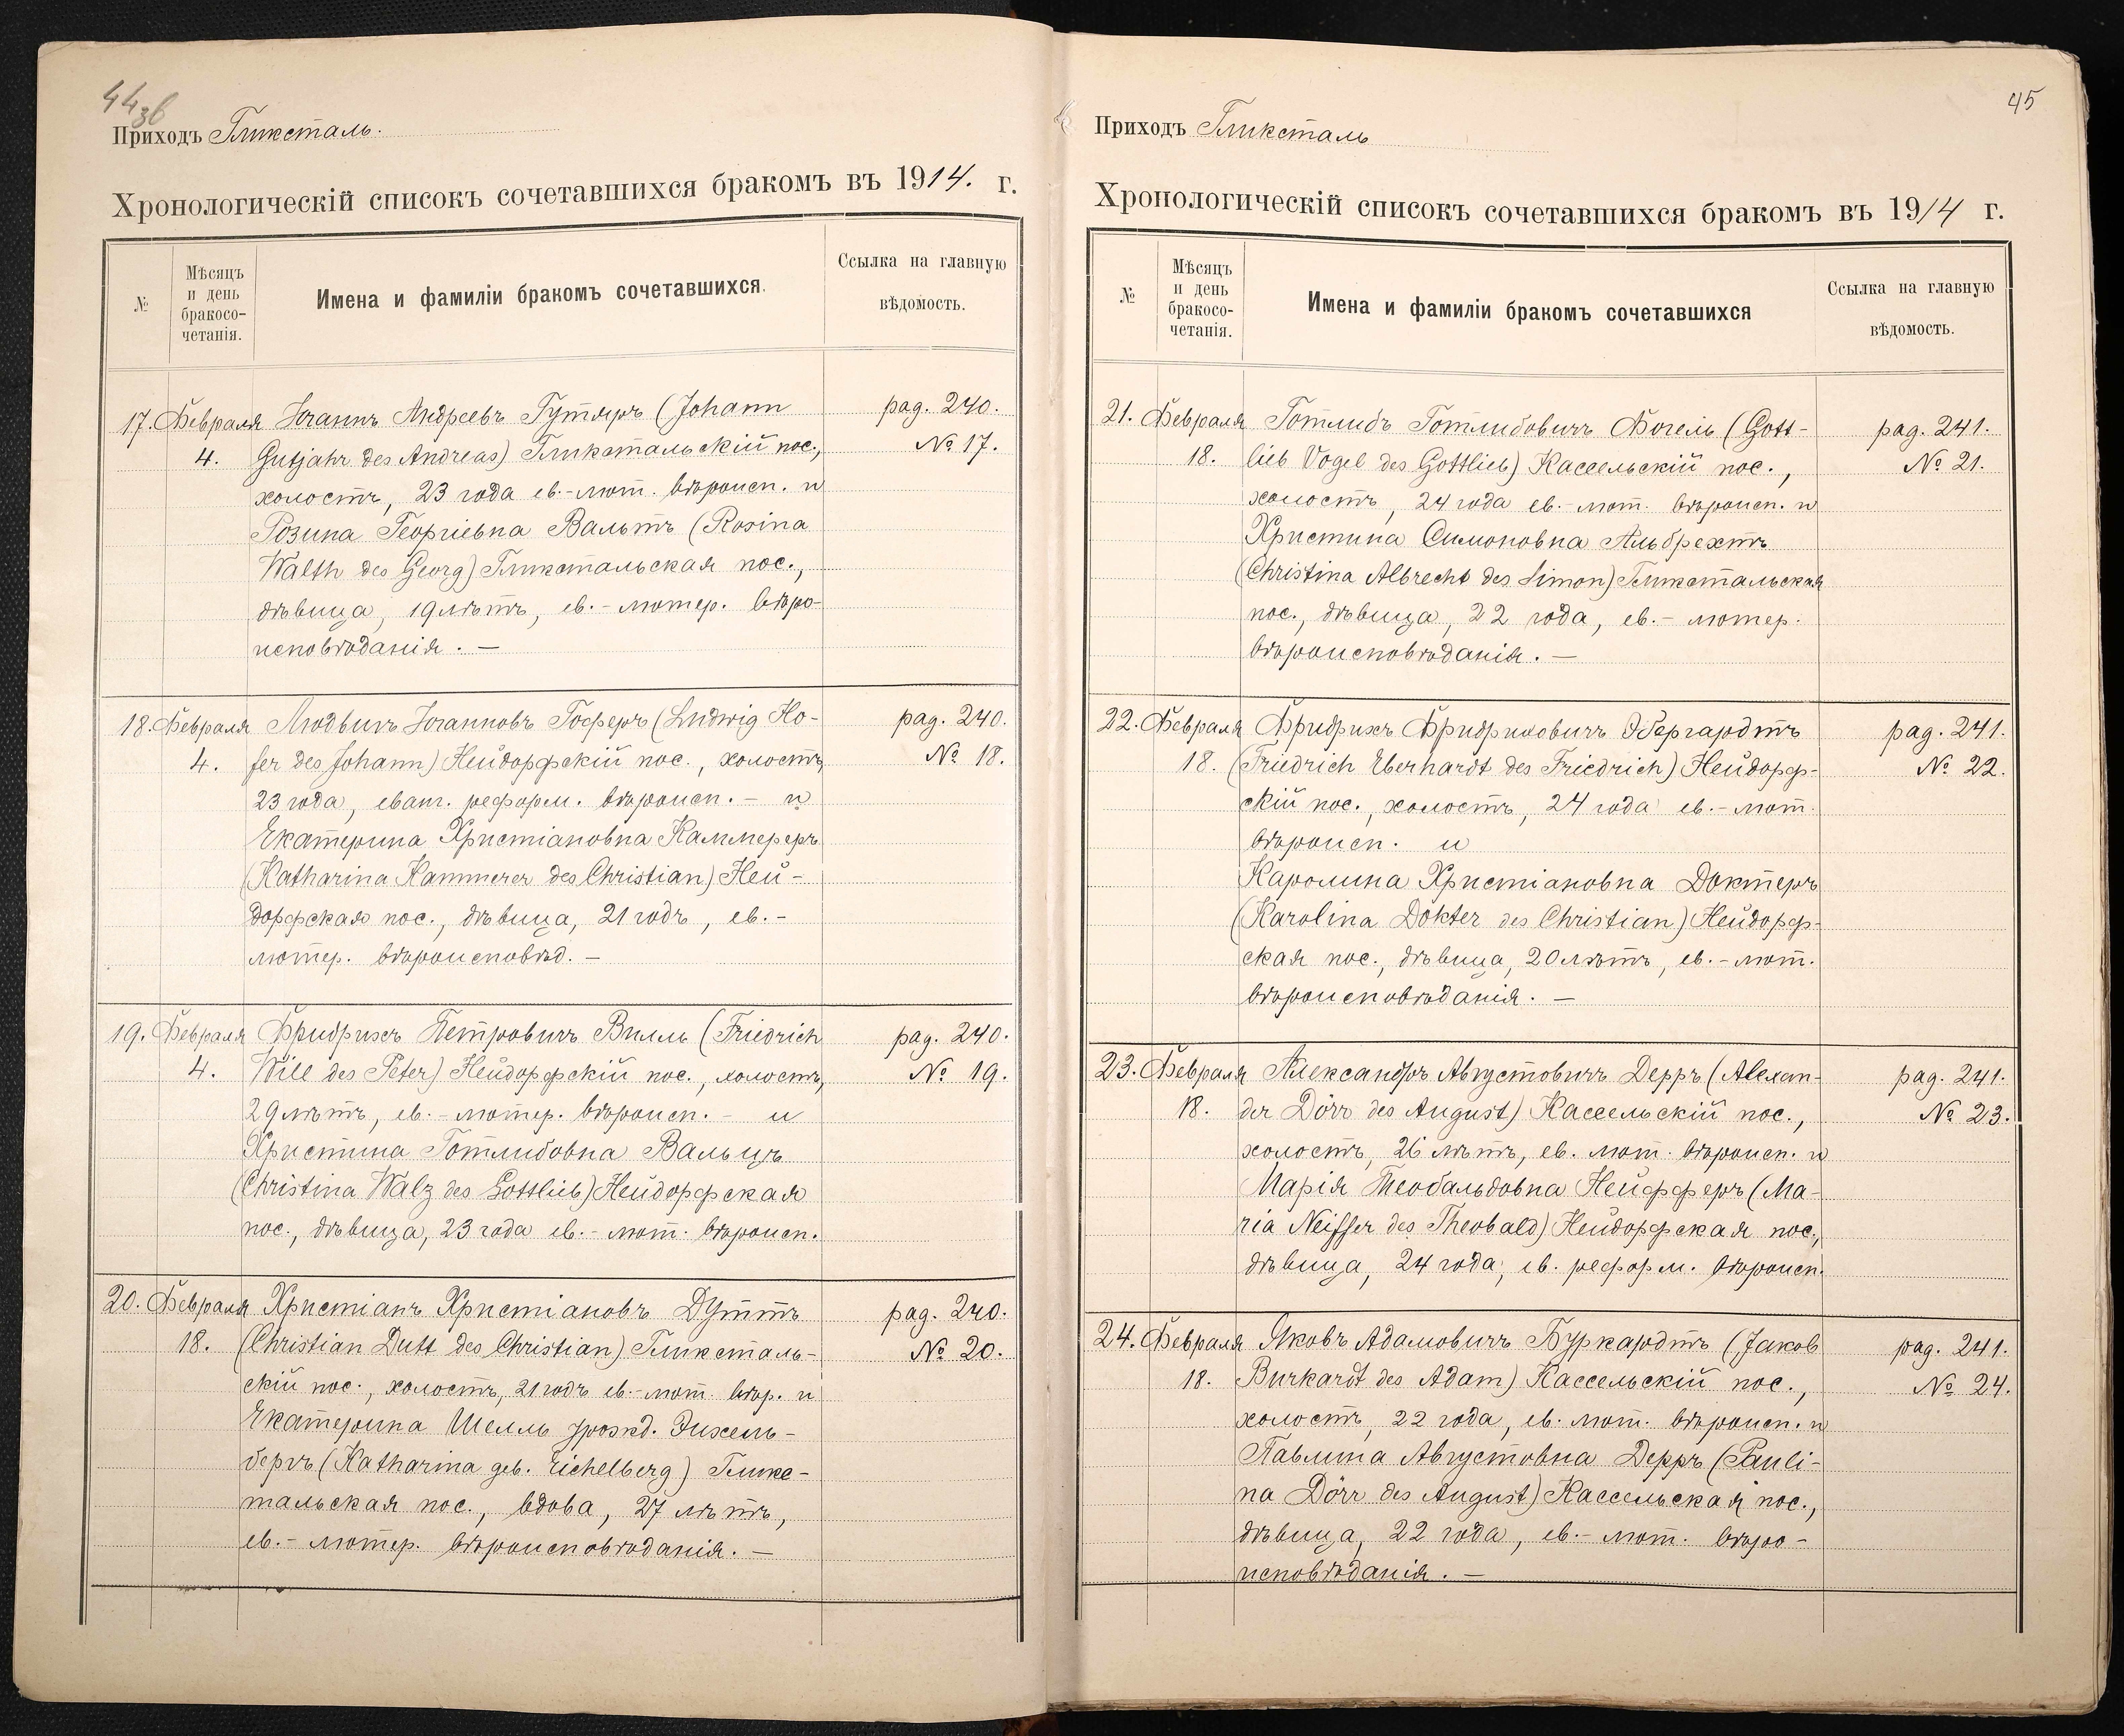 44зв
Приходъ Гликсталь.
Хронологическій списокъ сочетавшихся бракомъ въ 1914. г.
№
Мѣсяцъ
и день
бракосо-
четанія.
Имена и фамиліи бракомъ сочетавшихся.
Ссылка на главную
вѣдомость.
17. Февраля Іоганнъ Андреевъ Гутяръ (Johann pag. 240.
4. Gutjahr des Andreas) Гликстальскій пос., № 17.
холостъ, 23 года ев.-лют. вѣроисп. и
Розина Георгіевна Вальтъ (Rosina
Walth des Georg) Гликстальская пос.,
дѣвица, 19 лѣтъ, ев.-лютер. вѣро-
исповѣданія. —
18. Февраля Людвигъ Іоганновъ Гоферъ (Ludwig Ho- pag. 240.
4. fer des Johann) Нейдорфскій пос., холостъ, № 18.
23 года, еванг. реформ. вѣроисп. — и
Екатерина Христіановна Каммереръ
(Katharina Kammerer des Christian) Ней-
дорфская пос., дѣвица, 21 годъ, ев.-
лютер. вѣроисповѣд. —
19. Февраля Фридрихъ Петровичъ Вилль (Friedrich pag. 240.
4. Will des Peter) Нейдорфскій пос., холостъ, № 19.
29 лѣтъ, ев.-лютер. вѣроисп. - и
Христина Готлибовна Вальцъ
(Christina Walz des Gottlieb) Нейдорфская
пос., дѣвица, 23 года ев.-лют. вѣроисп.
20. Февраля Христіанъ Христіановъ Дуттъ pag. 240.
18. (Christian Dutt des Christian) Гликсталь- № 20.
скій пос., холостъ, 21 годъ ев.-лют. вѣр. и
Екатерина Шелль урожд. Эихель-
бергъ (Katharina geb. Eichelberg) Гликс-
тальская пос., вдова, 27 лѣтъ,
ев.-лютер. вѣроисповѣданія. —
45
Приходъ Гликсталь
Хронологическій списокъ сочетавшихся бракомъ въ 1914 г.
№
Мѣсяцъ
и день
бракосо-
четанія.
Имена и фамиліи бракомъ сочетавшихся
Ссылка на главную
вѣдомость.
21. Февраля Готлибъ Готлибовичъ Фогель (Gott- pag. 241.
18. lieb Vogel des Gottlieb) Кассельскій пос., № 21.
холостъ, 24 года ев.-лют. вѣроисп. и
Христина Симоновна Альбрехтъ
(Christina Albrecht des Simon) Гликстальская
пос., дѣвица, 22 года, ев.-лютер.
вѣроисповѣданія. —
22. Февраля Фридрихъ Фридриховичъ Эбергардтъ pag. 241.
18. (Friedrich Eberhardt des Friedrich) Нейдорф- № 22.
скій пос., холостъ, 24 года ев.-лют.
вѣроисп. и
Каролина Христіановна Доктеръ
(Karolina Dokter des Christian) Нейдорф-
ская пос., дѣвица, 20 лѣтъ, ев.-лют.
вѣроисповѣданія. —
23. Февраля Александръ Августовичъ Дерръ (Alexan- pag. 241.
18. der Dörr des August) Кассельскій пос., № 23.
холостъ, 26 лѣтъ, ев. лют. вѣроисп. и
Марія Теобальдовна Нейфферъ (Ma-
ria Neiffer des Theobald) Нейдорфская пос.,
дѣвица, 24 года, ев. реформ. вѣроисп.
24. Февраля Яковъ Адамовичъ Буркардтъ (Jakob pag. 241.
18. Burkardt des Adam) Кассельскій пос., № 24.
холостъ, 22 года, ев. лют. вѣроисп. и
Павлина Августовна Дерръ (Pauli-
na Dörr des August) Кассельская пос.,
дѣвица, 22 года, ев.-лют. вѣро-
исповѣданія. —